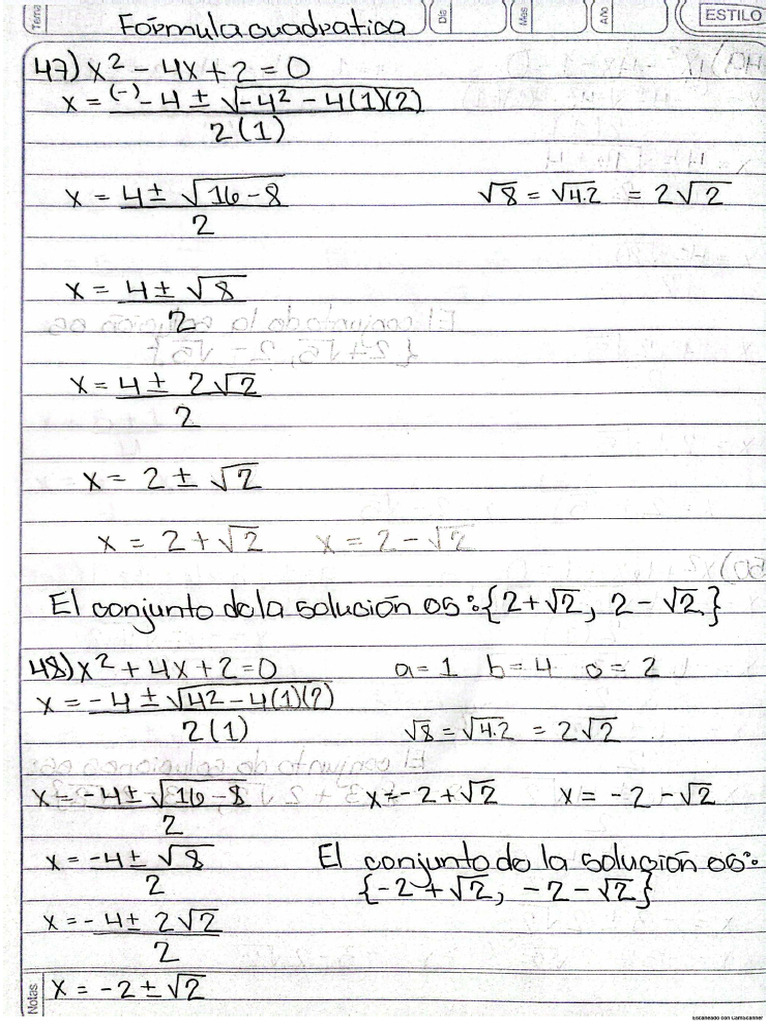 Tema
Fórmula cuadratica
Día
Mes
Año
ESTILO
47) x² - 4x + 2 = 0
x = (-) -4 ± √-4² - 4(1)(2)
2(1)
x = 4 ± √16-8
2
√8 = √4.2 = 2√2
x = 4 ± √8
2
x = 4 ± 2√2
2
x = 2 ± √2
x = 2 + √2 x = 2 - √2
El conjunto de la solución es: {2+√2, 2-√2}
48) x² + 4x + 2 = 0 a = 1 b = 4 c = 2
x = -4 ± √4² - 4(1)(2)
2(1)
√8 = √4.2 = 2√2
x = -4 ± √16-8
2
x = -2 + √2 x = -2 - √2
x = -4 ± √8
2
El conjunto de la solución es:
{-2 + √2, -2 - √2}
x = -4 ± 2√2
2
Notas
x = -2 ± √2
Escaneado con CamScanner